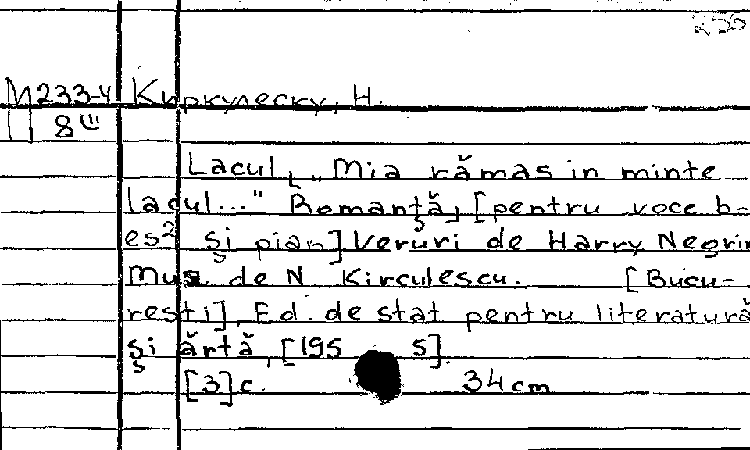 М233-4 Киркулеску, Н.
8ш
Lacul, "Mia rămas in minte
lacul..." Romanţă, [pentru voce b-
es² şi pian] Veruri de Harry Negrin
Mus. de N Kirculescu. [Bucu-
reşti], Ed. de stat pentru literatură
şi ărtă, [195 5].
[3]c. 34cm